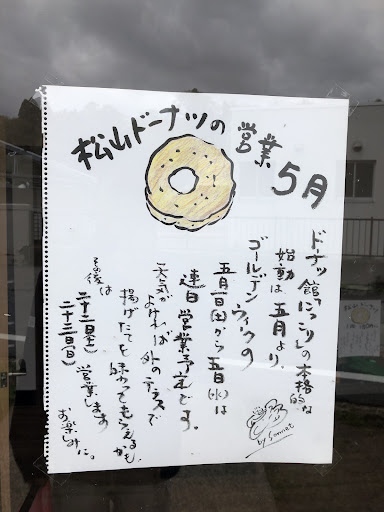 松山ドーナツの営業
5月
ドナッツ館「にっこり」の本格的な
始動は五月より。
ゴールデンウィークの
五月一日(土)から五日(水)は
連日営業予定です。
天気がよければ外のテラスで
揚げたてを味わってもらえるかも。
その後は
二十二日(土)
二十三日(日)
営業します
お楽しみに。
by Sonnet